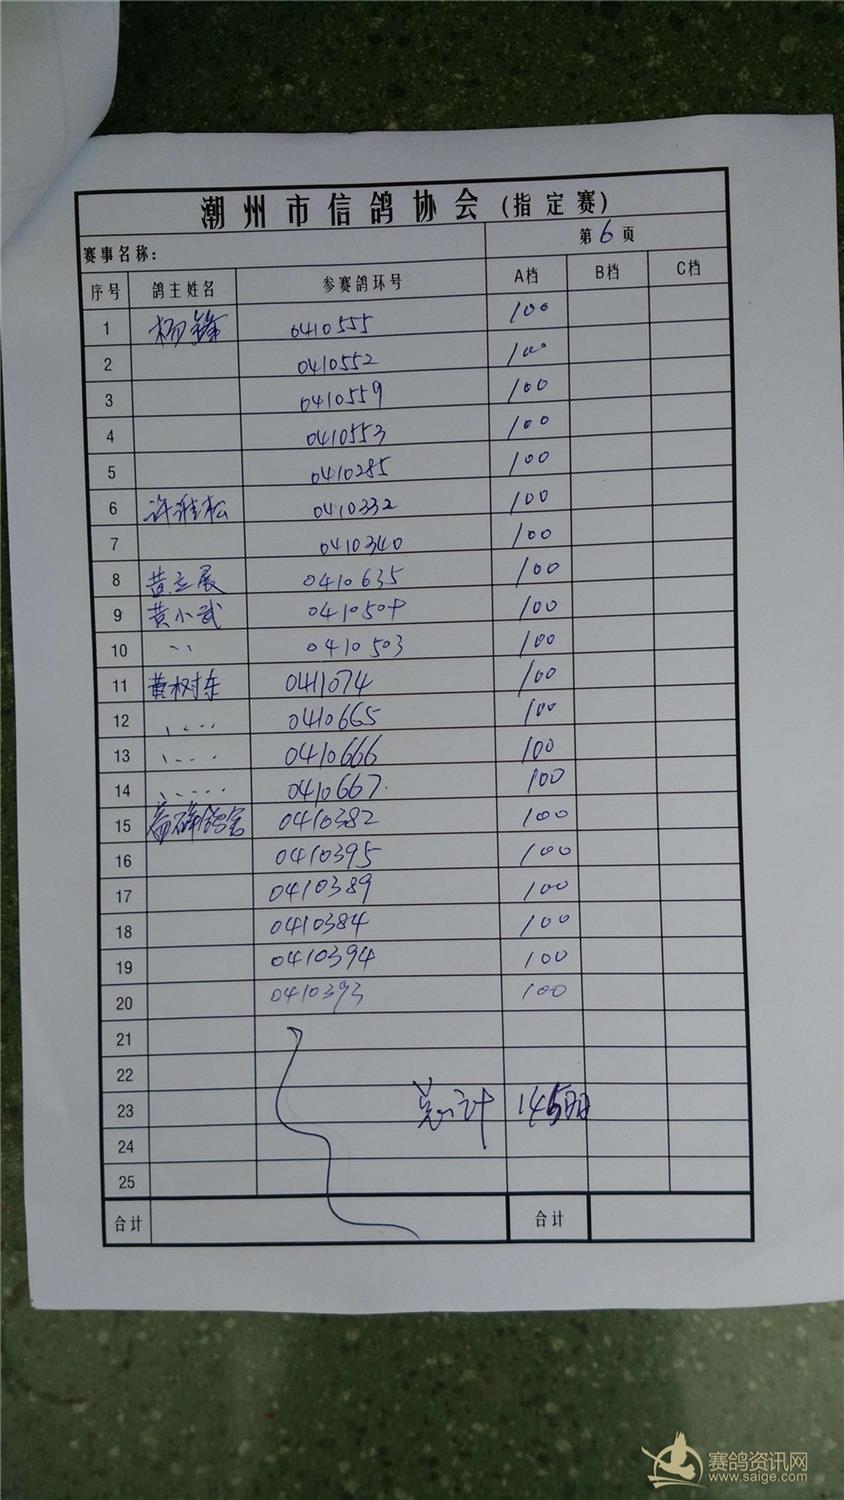 潮州市信鸽协会(指定赛)
赛事名称: 第6页
序号 鸽主姓名 参赛鸽环号 A档 B档 C档
1 杨锋 0410555 100
2 0410552 100
3 0410559 100
4 0410553 100
5 0410285 100
6 许淮松 0410332 100
7 0410340 100
8 黄立展 0410635 100
9 黄小武 0410504 100
10 、、 0410503 100
11 黄树东 0411074 100
12 、、、、 0410665 100
13 、、、、 0410666 100
14 、、、、、 0410667 100
15 鸽舍 0410382 100
16 0410395 100
17 0410389 100
18 0410384 100
19 0410394 100
20 0410393 100
21
22
23 总计 145羽
24
25
合计 合计
赛鸽资讯网
www.saige.com